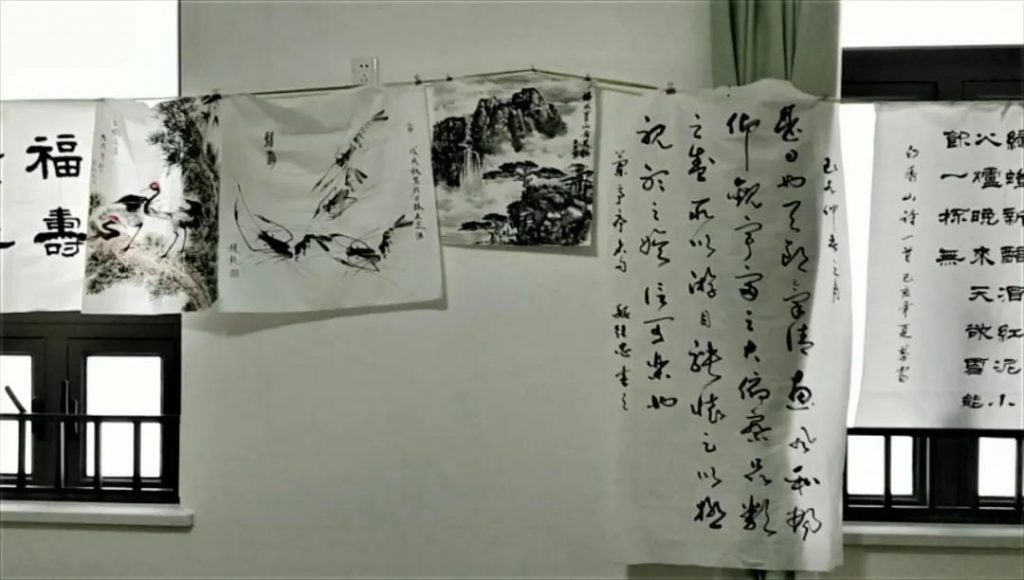 福壽
是日也天朗氣清惠风和暢
仰觀宇宙之大俯察品類
之盛所以游目騁懷足以極
視聽之娱信可樂也
綠螘新醅酒紅泥小
火爐晚來天欲雪能
飲一杯無
白居易詩一首己亥年夏